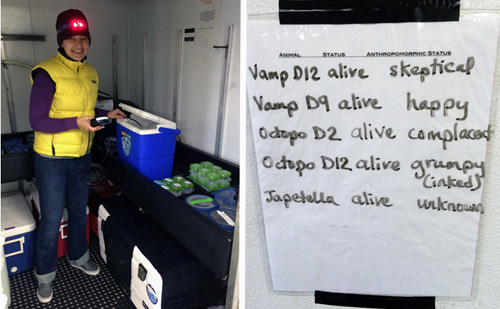 ANIMAL STATUS ANTHROPOMORPHIC STATUS
Vamp D12 alive skeptical
Vamp D9 alive happy
Octopo D2 alive complaced
Octopo D12 alive grumpy
(inked)
Japetella alive unknown